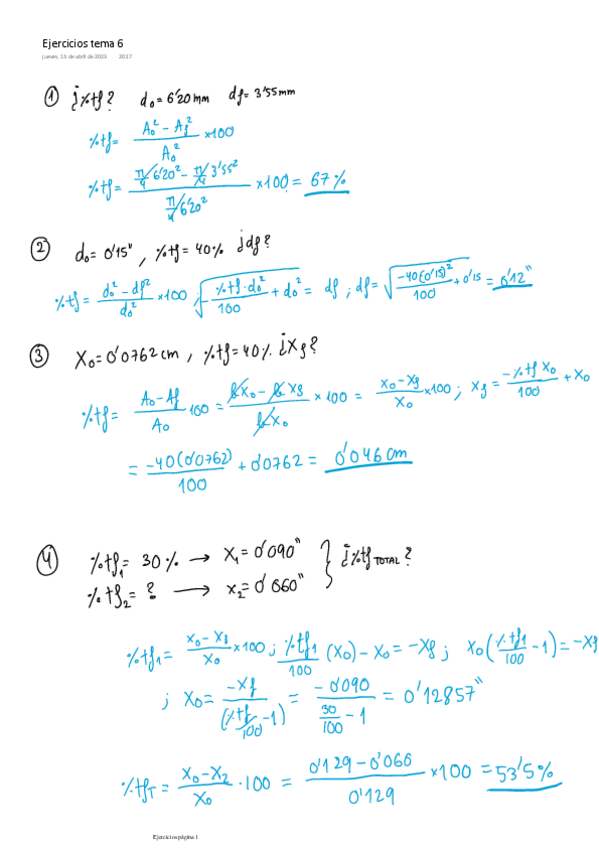 Ejercicios tema 6
jueves, 13 de abril de 2023 20:17
① ¿%tf? d₀ = 6'20 mm df = 3'55 mm
%tf = (A₀² - Af²) / A₀² × 100
%tf = (π/4 6'20² - π/4 3'55²) / (π/4 6'20²) × 100 = 67%
② d₀ = 0'15", %tf = 40% ¿df?
%tf = (d₀² - df²) / d₀² × 100 ; √(%tf · d₀² / 100 + d₀²) = df ; df = √(-40(0'15)² / 100 + 0'15) = 0'12"
③ X₀ = 0'0762 cm, %tf = 40% ¿Xf?
%tf = (A₀ - Af) / A₀ 100 = (b X₀ - b Xf) / (b X₀) × 100 = (X₀ - Xf) / X₀ × 100 ; Xf = (-%tf X₀) / 100 + X₀
= -40(0'0762) / 100 + 0'0762 = 0'046 cm
④ %tf₁ = 30% → X₁ = 0'090" } ¿%tf TOTAL?
%tf₂ = ? → X₂ = 0'060"
%tf₁ = (X₀ - Xf) / X₀ × 100 ; %tf₁ / 100 (X₀) - X₀ = -Xf ; X₀(%tf₁ / 100 - 1) = -Xf
; X₀ = -Xf / (%tf / 100 - 1) = -0'090 / (30 / 100 - 1) = 0'12857"
%tfT = (X₀ - X₂) / X₀ · 100 = (0'129 - 0'060) / 0'129 × 100 = 53'5%
Ejercicios página 1